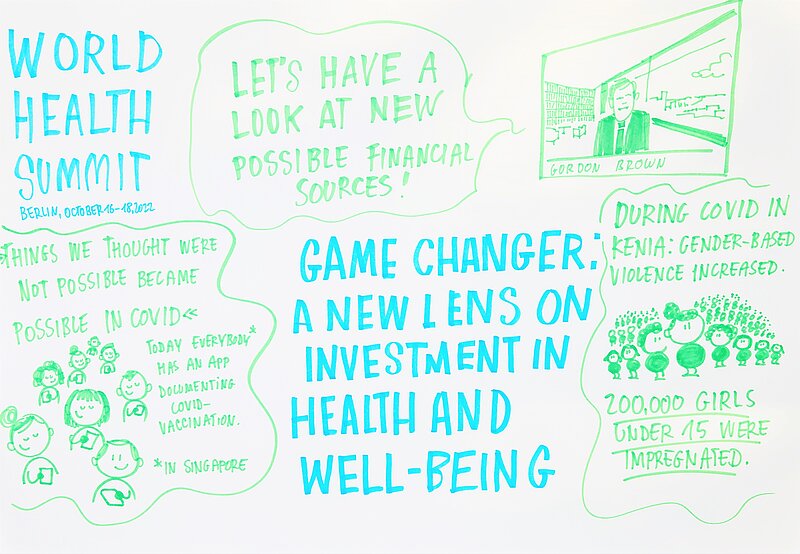 WORLD
HEALTH
SUMMIT
BERLIN, OCTOBER 16-18, 2022
LET'S HAVE A
LOOK AT NEW
POSSIBLE FINANCIAL
SOURCES!
GORDON BROWN
THINGS WE THOUGHT WERE
NOT POSSIBLE BECAME
POSSIBLE IN COVID «
TODAY EVERYBODY*
HAS AN APP
DOCUMENTING
COVID-
VACCINATION.
*IN SINGAPORE
GAME CHANGER:
A NEW LENS ON
INVESTMENT IN
HEALTH AND
WELL-BEING
DURING COVID IN
KENIA: GENDER-BASED
VIOLENCE INCREASED.
200,000 GIRLS
UNDER 15 WERE
IMPREGNATED.